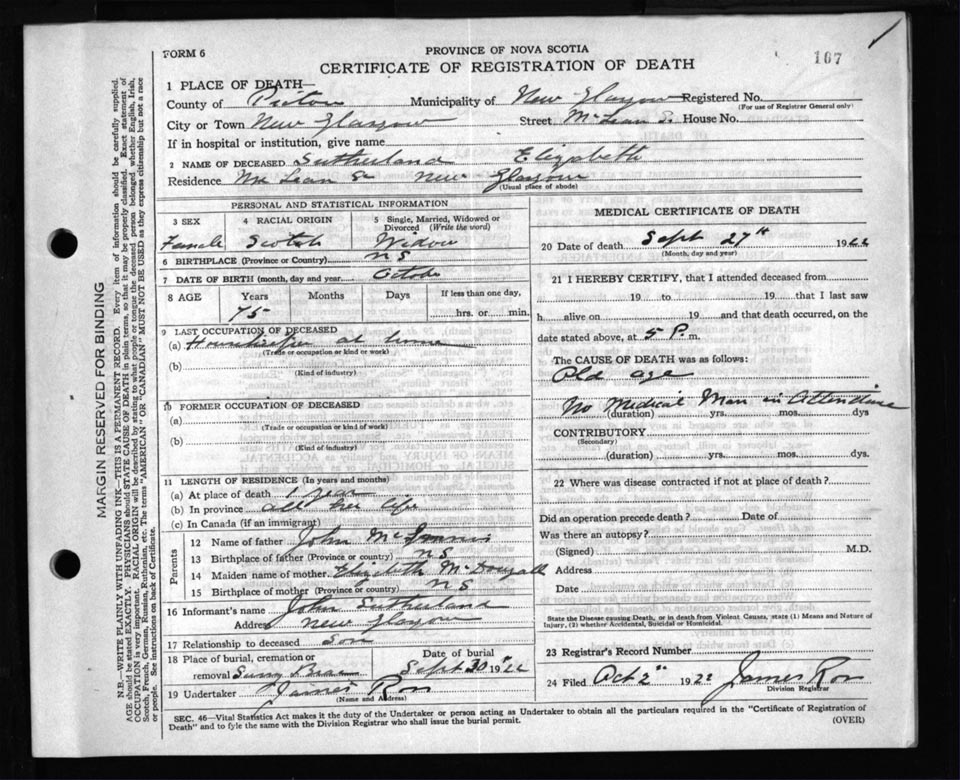 FORM 6
PROVINCE OF NOVA SCOTIA
CERTIFICATE OF REGISTRATION OF DEATH
167
1 PLACE OF DEATH—
County of Pictou Municipality of New Glasgow Registered No.
(For use of Registrar General only)
City or Town New Glasgow Street McLean St. House No.
If in hospital or institution, give name
2 NAME OF DECEASED Sutherland Elizabeth
Residence McLean St New Glasgow
(Usual place of abode)
PERSONAL AND STATISTICAL INFORMATION
3 SEX 4 RACIAL ORIGIN 5 Single, Married, Widowed or Divorced (Write the word)
Female Scotch Widow
6 BIRTHPLACE (Province or Country) N S
7 DATE OF BIRTH (month, day and year) October
8 AGE Years Months Days If less than one day,
75 hrs. or min.
9 LAST OCCUPATION OF DECEASED
(a) at home
(Trade or occupation or kind or work)
(b)
(Kind of industry)
10 FORMER OCCUPATION OF DECEASED
(a)
(Trade or occupation or kind or work)
(b)
(Kind of industry)
11 LENGTH OF RESIDENCE (In years and months)
(a) At place of death 1 year
(b) In province all her life
(c) In Canada (if an immigrant)
Parents
12 Name of father John McInnis
13 Birthplace of father (Province or country) N S
14 Maiden name of mother Elizabeth McDougall
15 Birthplace of mother (Province or country) N S
16 Informant's name John Sutherland
Address New Glasgow
17 Relationship to deceased Son
18 Place of burial, cremation or removal Sunny Brae Date of burial Sept 30 1922
19 Undertaker James Ross
(Name and Address)
MEDICAL CERTIFICATE OF DEATH
20 Date of death Sept 27th 1922
(Month, day and year)
21 I HEREBY CERTIFY, that I attended deceased from
19 to 19 that I last saw
h alive on 19 and that death occurred, on the
date stated above, at 5 P. m.
The CAUSE OF DEATH was as follows:
Old age
No Medical Man in Attendance
(duration) yrs. mos. dys
CONTRIBUTORY
(Secondary)
(duration) yrs. mos. dys.
22 Where was disease contracted if not at place of death?
Did an operation precede death? Date of
Was there an autopsy?
(Signed) M.D.
Address
Date
State the Disease causing Death, or in death from Violent Causes, state (1) Means and Nature of Injury, (2) whether Accidental, Suicidal or Homicidal.
23 Registrar's Record Number
24 Filed Oct 2" 1922 James Ross
Division Registrar
SEC. 46—Vital Statistics Act makes it the duty of the Undertaker or person acting as Undertaker to obtain all the particulars required in the "Certificate of Registration of
Death" and to fyle the same with the Division Registrar who shall issue the burial permit.
(OVER)
MARGIN RESERVED FOR BINDING
N.B.—WRITE PLAINLY WITH UNFADING INK—THIS IS A PERMANENT RECORD. Every item of information should be carefully supplied.
AGE should be stated EXACTLY. PHYSICIANS should STATE CAUSE OF DEATH in plain terms, so that it may be properly classified. Exact statement of
OCCUPATION is very important. RACIAL ORIGIN will be described by stating to what people or tongue the deceased person belonged, whether English, Irish,
Scotch, French, German, Russian, Ruthenian, etc. The terms "AMERICAN" OR "CANADIAN" MUST NOT BE USED as they express citizenship but not a race
or people. See instructions on back of Certificate.